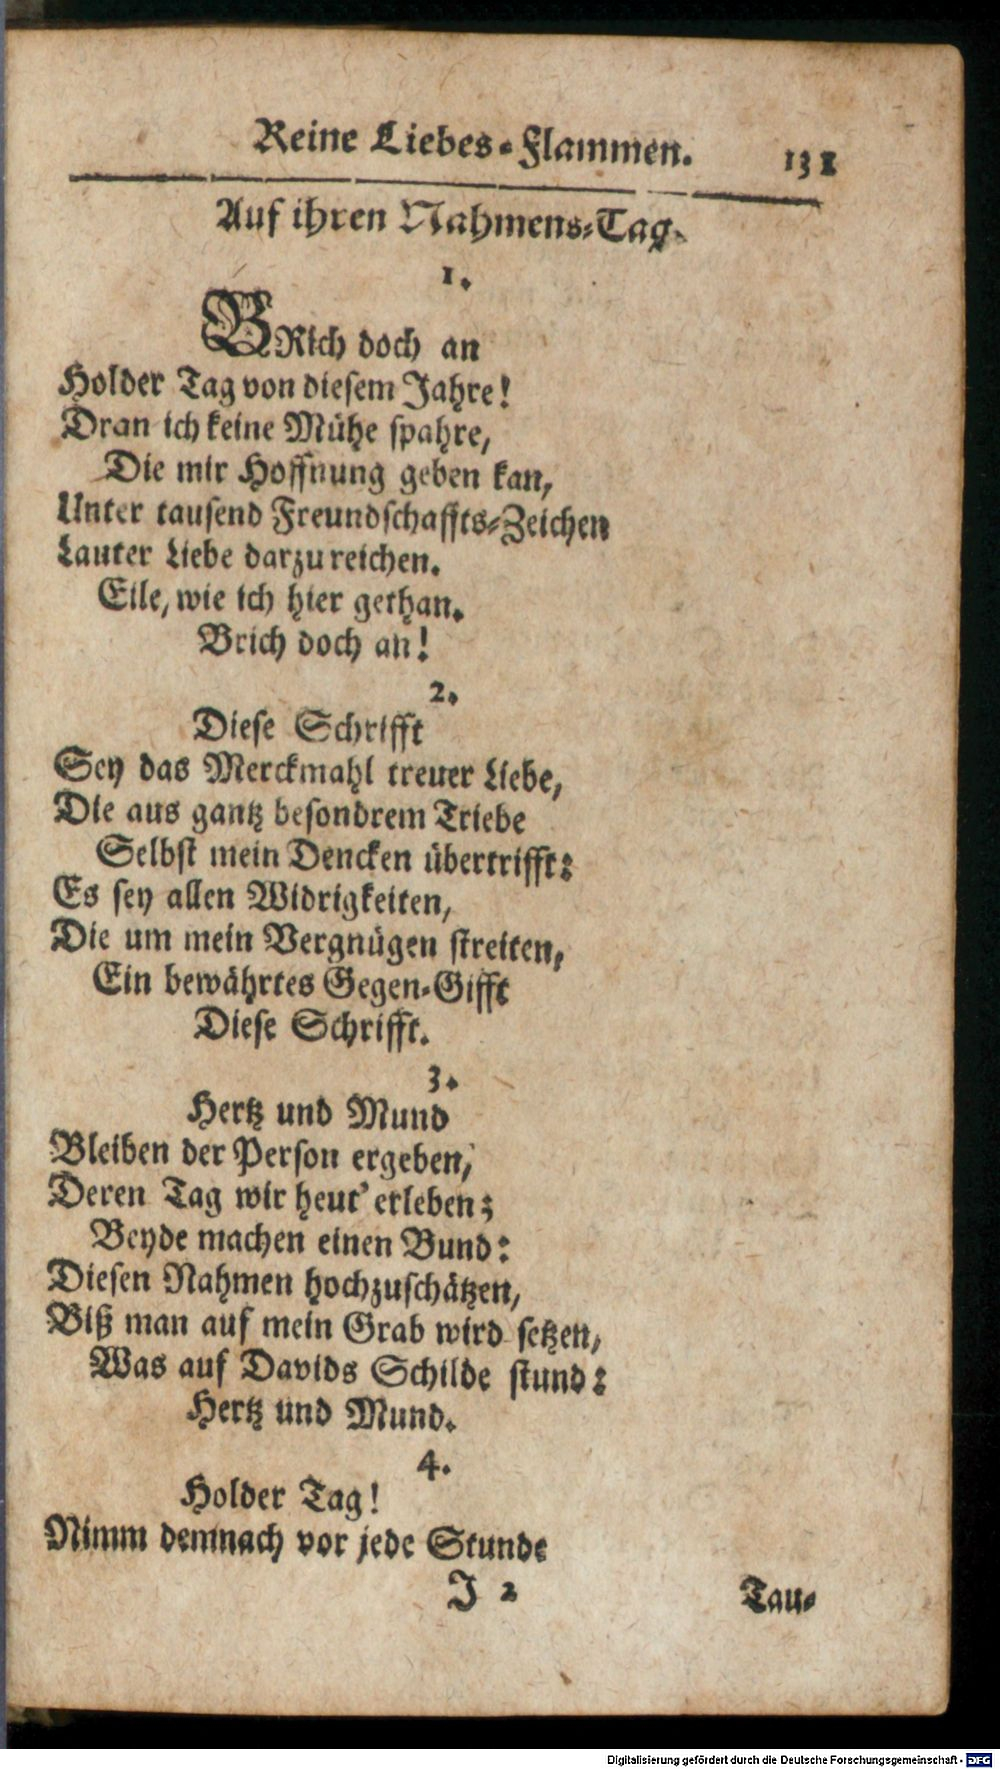 Reine Liebes-Flammen. 131
Auf ihren Nahmens-Tag.
1.
BRich doch an
Holder Tag von diesem Jahre!
Dran ich keine Mühe spahre,
Die mir Hoffnung geben kan,
Unter tausend Freundschaffts-Zeichen
Lauter Liebe darzureichen.
Eile, wie ich hier gethan.
Brich doch an!
2.
Diese Schrifft
Sey das Merckmahl treuer Liebe,
Die aus gantz besondrem Triebe
Selbst mein Dencken übertrifft:
Es sey allen Widrigkeiten,
Die um mein Vergnügen streiten,
Ein bewährtes Gegen-Gifft
Diese Schrifft.
3.
Hertz und Mund
Bleiben der Person ergeben,
Deren Tag wir heut' erleben;
Beyde machen einen Bund:
Diesen Nahmen hochzuschätzen,
Biß man auf mein Grab wird setzen,
Was auf Davids Schilde stund:
Hertz und Mund.
4.
Holder Tag!
Nimm demnach vor jede Stunde
J 2 Tau-
Digitalisierung gefördert durch die Deutsche Forschungsgemeinschaft - DFG